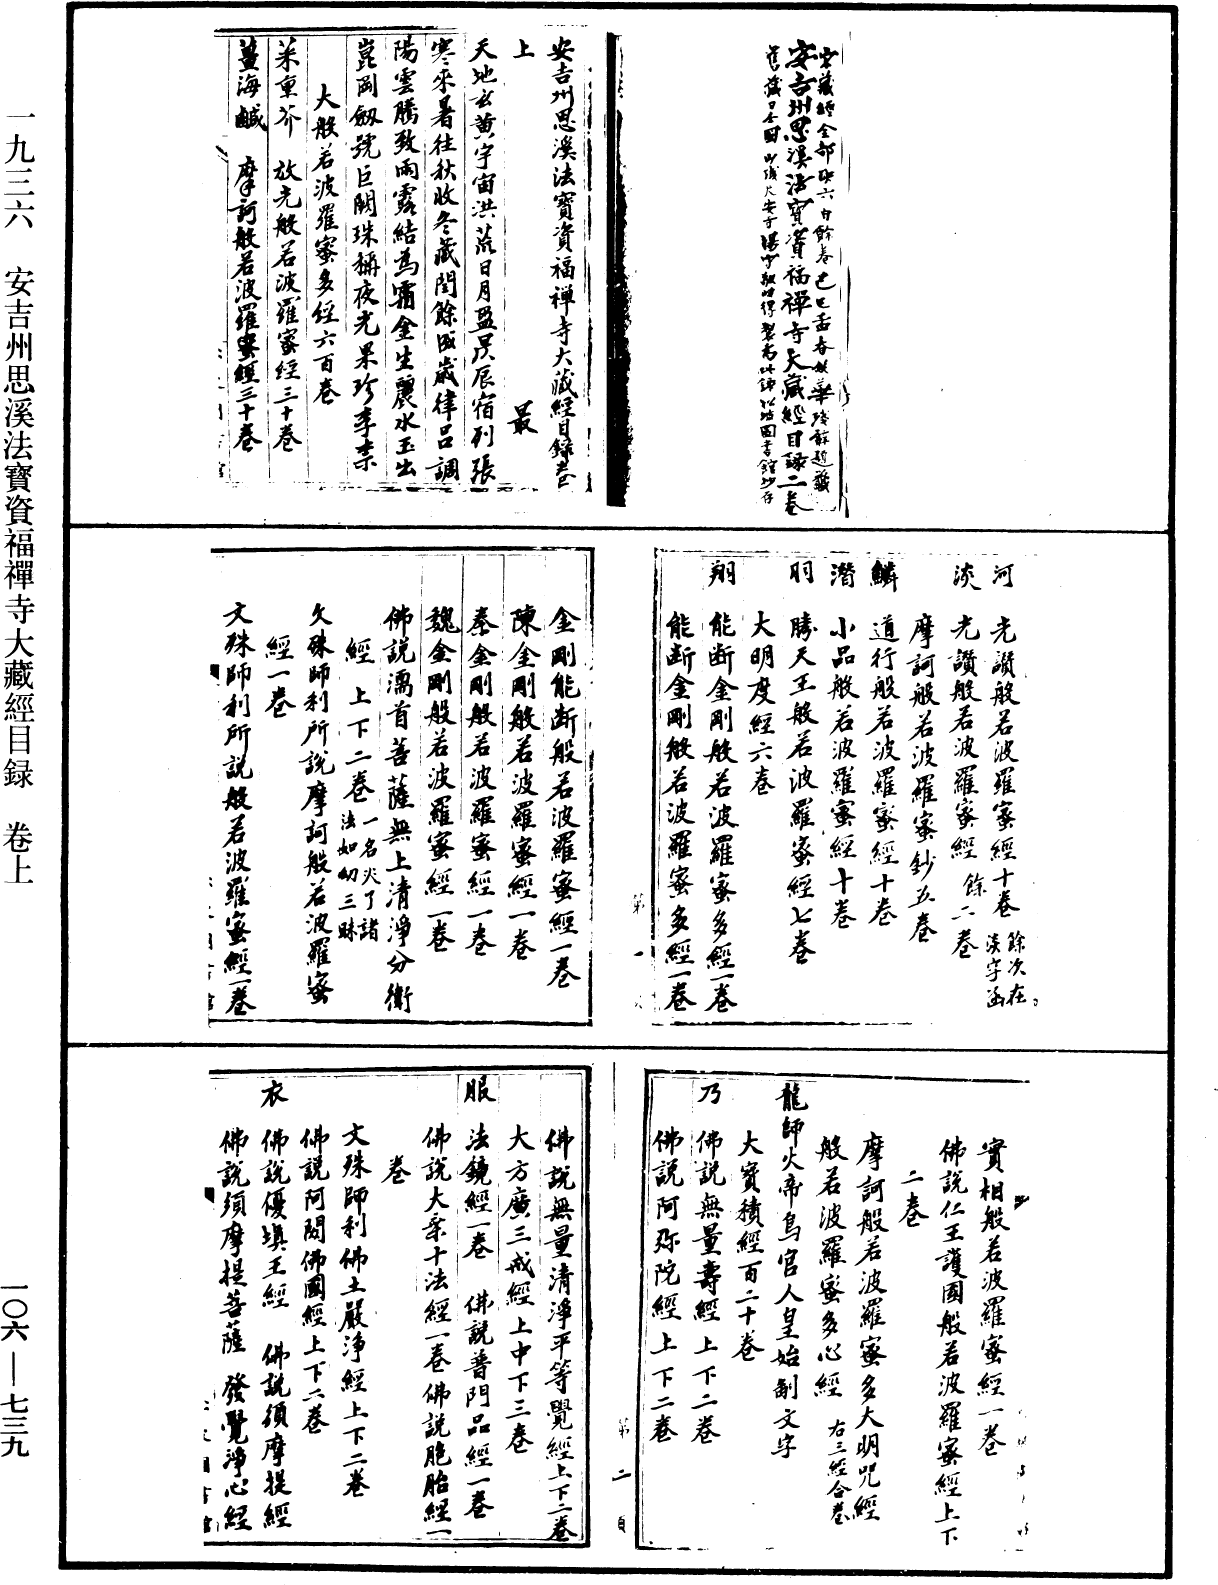 一九三六　安吉州思溪法寶資福禪寺大藏經目録　卷上
一〇六—七三九
安吉州思溪法寶資福禪寺大藏經目録二卷
安吉州思溪法寶資福禪寺大藏經目録卷
上　最
天地玄黄宇宙洪荒日月盈昃辰宿列張
寒來暑往秋收冬藏閏餘成歲律吕調
陽雲騰致雨露結爲霜金生麗水玉出
崑岡劒號巨闕珠稱夜光果珍李柰
大般若波羅蜜多經六百卷
菜重芥　放光般若波羅蜜經三十卷
薑海鹹　摩訶般若波羅蜜經三十卷
河　光讚般若波羅蜜經十卷　餘次在淡字函
淡　光讚般若波羅蜜經　餘二卷
摩訶般若波羅蜜鈔五卷
鱗　道行般若波羅蜜經十卷
潛　小品般若波羅蜜經十卷
羽　勝天王般若波羅蜜經七卷
大明度經六卷
翔　能断金剛般若波羅蜜多經一卷
能断金剛般若波羅蜜多經一卷
第一
金剛能断般若波羅蜜經一卷
陳金剛般若波羅蜜經一卷
秦金剛般若波羅蜜經一卷
魏金剛般若波羅蜜經一卷
佛説濡首菩薩無上清淨分衛
經　上下二卷　一名决了諸法如幻三昧
文殊師利所説摩訶般若波羅蜜
經一卷
文殊師利所説般若波羅蜜經一卷
實相般若波羅蜜經一卷
佛説仁王護國般若波羅蜜經上下
二卷
摩訶般若波羅蜜多大明咒經
般若波羅蜜多心經　右三經合卷
龍師火帝鳥官人皇始制文字
大寶積經百二十卷
乃　佛説無量壽經上下二卷
佛説阿弥陀經上下二卷
第二頁
佛説無量清淨平等覺經上下二卷
大方廣三戒經上中下三卷
服　法鏡經一卷　佛説普門品經一卷
佛説大乘十法經一卷佛説胞胎經一
卷
文殊師利佛土嚴淨經上下二卷
佛説阿閦佛國經上下二卷
衣　佛説優填王經　佛説須摩提經
佛説須摩提菩薩　發覺淨心經